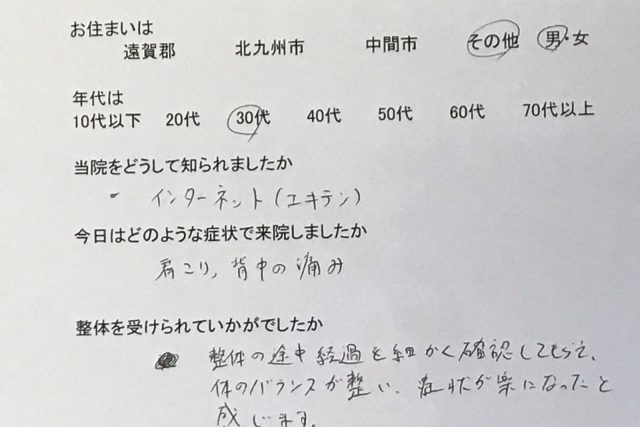 お住まいは
遠賀郡 北九州市 中間市 その他 男・女
年代は
10代以下 20代 30代 40代 50代 60代 70代以上
当院をどうして知られましたか
- インターネット(エキテン)
今日はどのような症状で来院しましたか
肩こり、背中の痛み
整体を受けられていかがでしたか
整体の途中経過を細かく確認してもらえ、
体のバランスが整い、症状が楽になったと
感じます。